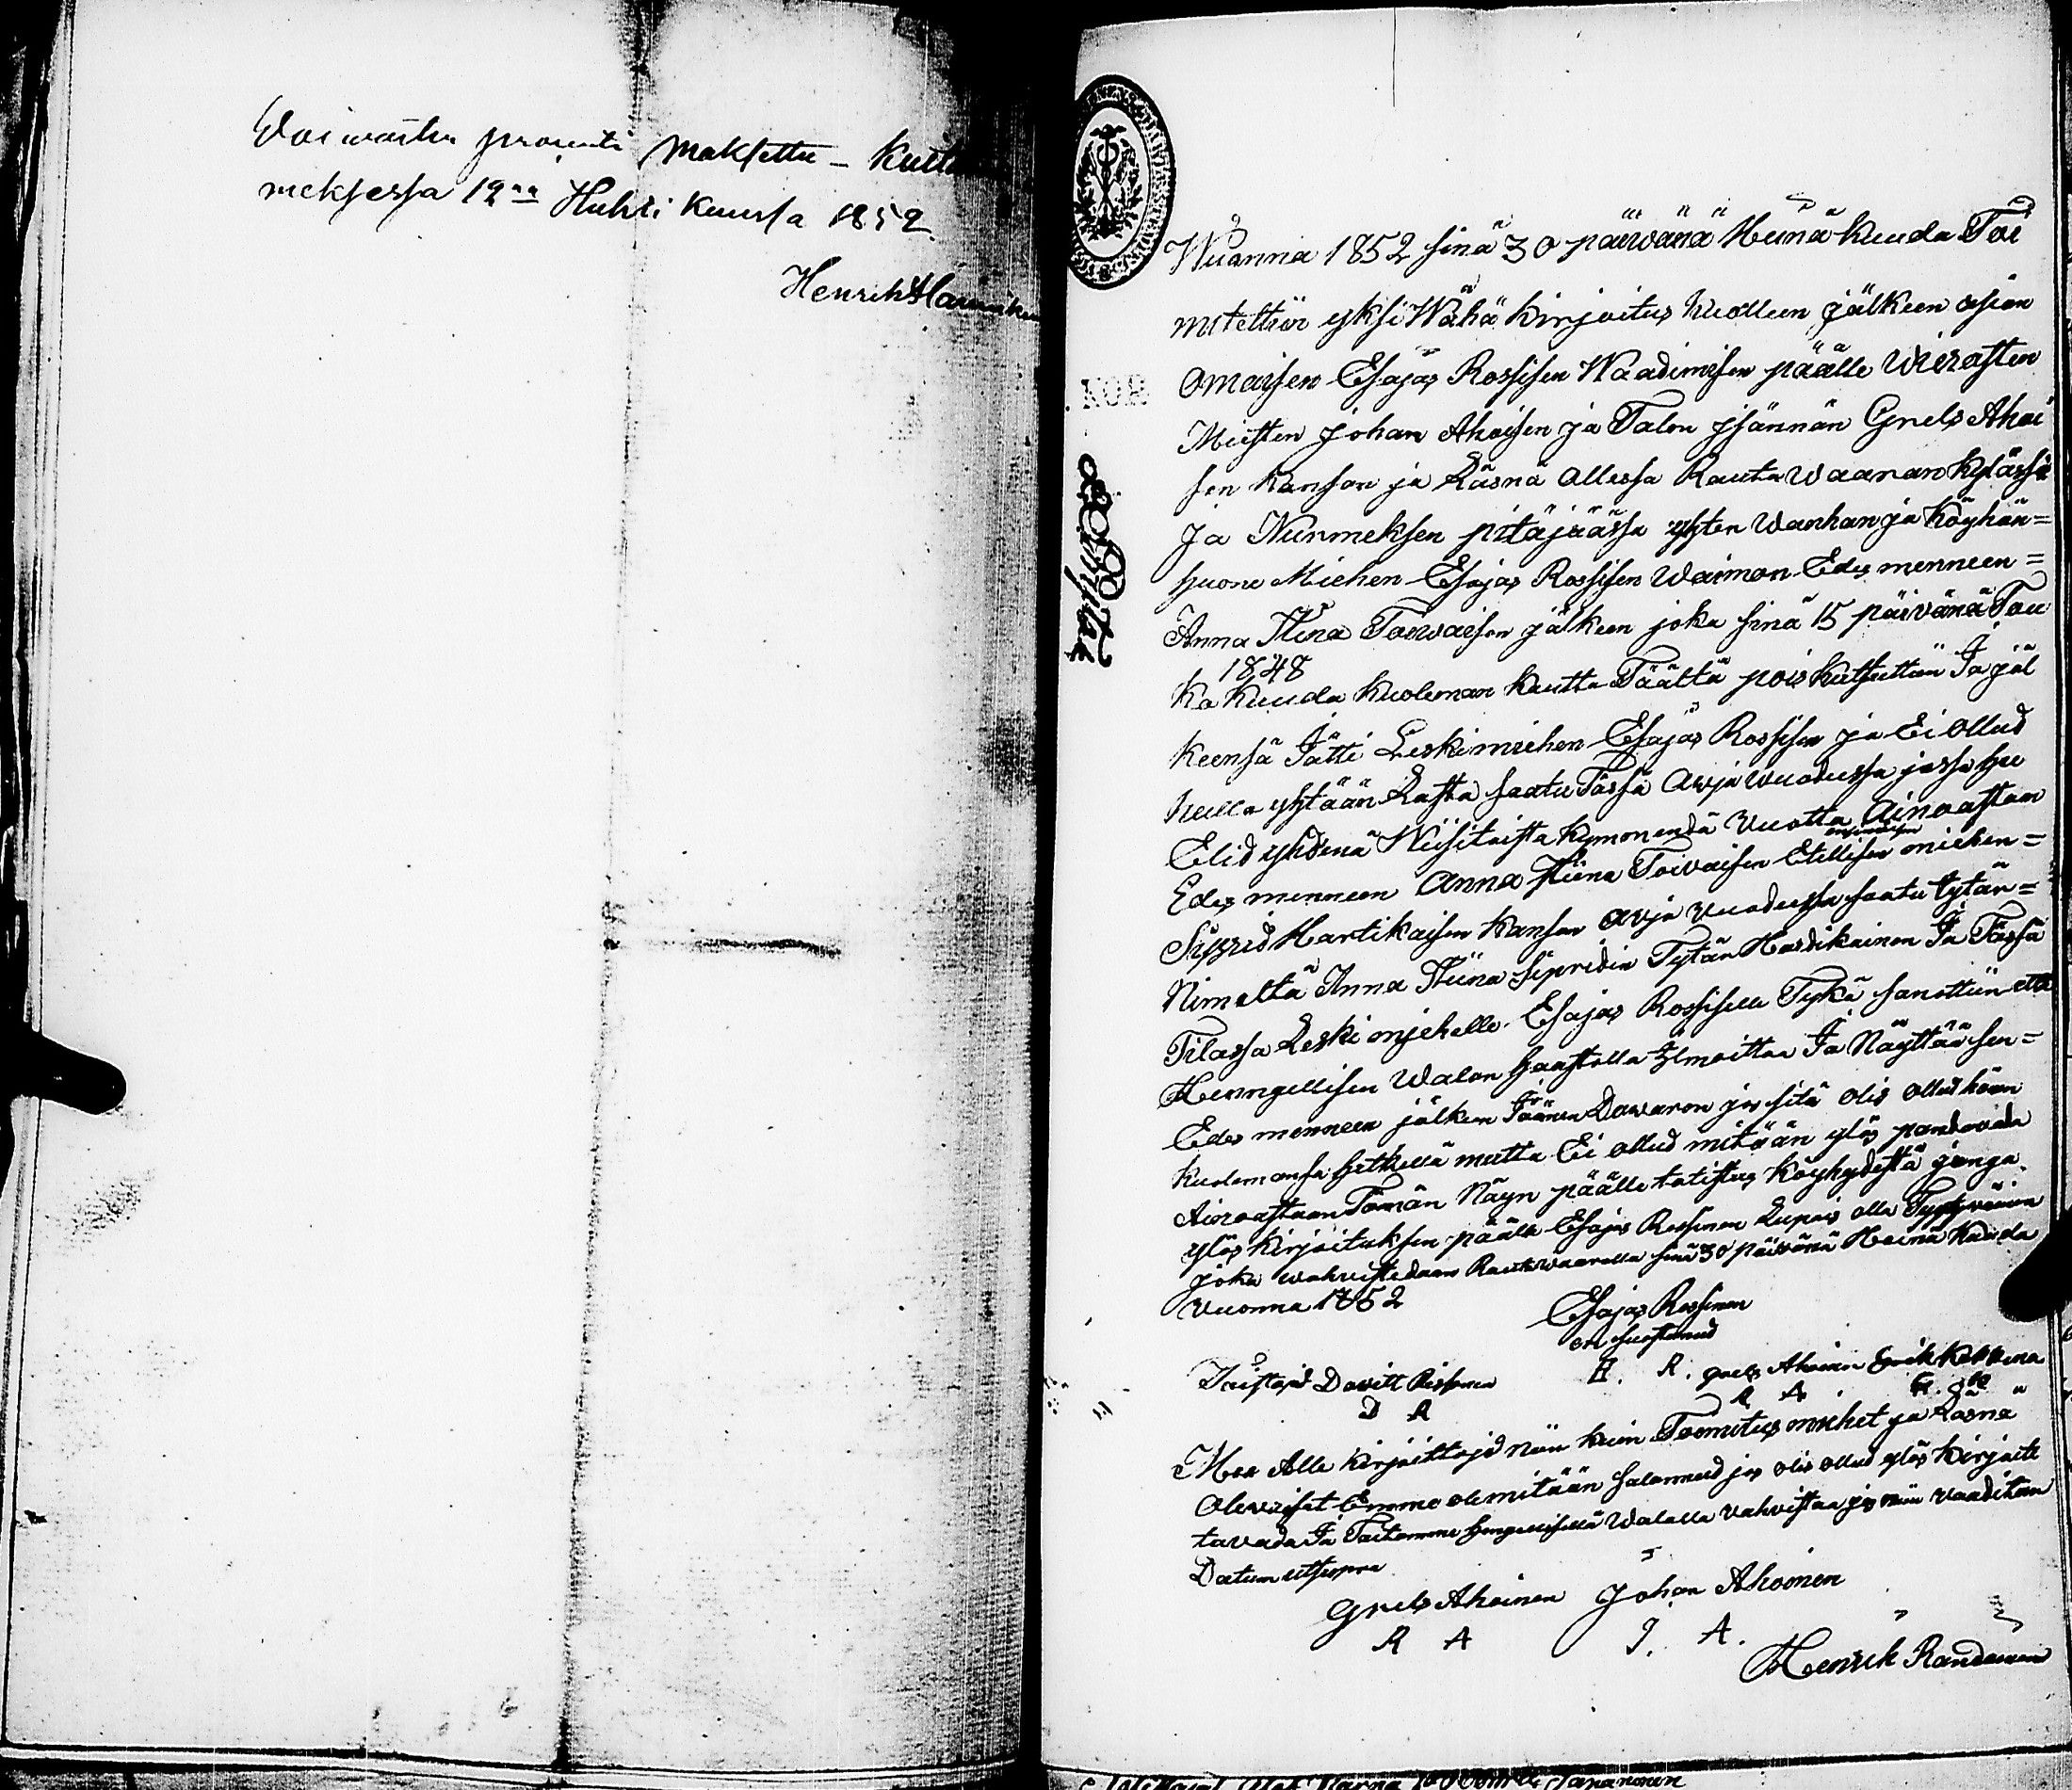 Waivaisten prosenti maksettu - 
meksessa 12na Huhti kuussa 1852
Henrik
Wuonna 1852 sinä 30 päiwänä Heinä kuuda Toi
mitettiin yksi Wähä kirjoitus kuolleen jälkeen asian
omaisen Esajas Rossisen Waadimisen päälle Wierasten
Miesten Johan Ahoisen ja Talon jsännän Grels Ahoi
sen kansan ja Läsnä ollessa Rautawaaran kylässä
Ja Nurmeksen pitäjäässä yhten Wanhan ja köyhän=
huone Miehen Esajas Rossisen Waimon Edes menneen=
Anna Stina Toiwaisen jälkeen joka sinä 15 päivänä Tou
1848
ko kuuda kuoleman kautta Täältä pois kutsuttiin Ja jäl
keensä Jätti Leskimiehen Esajas Rossisen ja Ei ollud
heillä yhtään Lasta saatu Tässä Awjo wuodessa jossa hu
Elid yhdenä Wiisitoista kymonendä Vuotta Ainoastan
ensimäisen
Edes menneen Anna Stiina Toivaisen Etellisen miehen=
Siprid Hartikaisen kansan avjo vuodessa saatu tytär=
Nimeltä Anna Stiina Sipridin Tytär Hardikainen Ja Tässä
Tilassa Leski mjehelle Esajas Rossiselle Tykö sanottiin että
Henngellisen Walan haastolla Ilmoittaa Ja Näyttää sen=
Edes menneen jälken Jäänen Dawaron jos sitä olis ollud hänen
kuolemansa hetkellä mutta Ei ollud mitään ylös pandavada
Ainoastaan Tämän Näyn päälle totistus köyhydestä jonga
ylös kirjoituksen päälle Esajas Rossinen Lupais olla Tyytyväinen
Joka wahvistedaan Rautawaaralla sinä 30 päivänä Heinä kuuda
Vuonna 1852
Esajas Rossinen
en suostunud
Toistajd Davitt Rissanen E. R. Grels Ahoinen Erik
D R R A E.
Mee Alle kirjoittajd niin kuin Toomitus miehet ja Läsnä
olevaiset Emme ole mitään salanneed jos olis ollud ylös kirjoite
tavada Ja Taitamme hengellisellä Walalla vahvistaa jos niin vaaditaan
Datum utsupra
Grels Ahoinen Johan Ahoinen
R A J. A.
Henrik